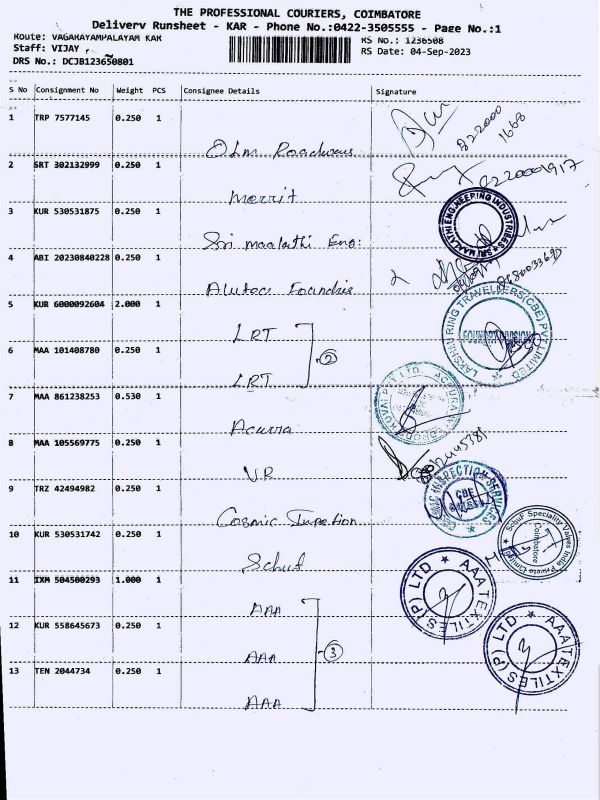 THE PROFESSIONAL COURIERS, COIMBATORE
Delivery Runsheet - KAR - Phone No.:0422-3505555 - Page No.:1
Route: VAGARAYAMPALAYAM KAR
RS No.: 1236508
Staff: VIJAY
RS Date: 04-Sep-2023
DRS No.: DCJB123650801
S No Consignment No Weight PCS Consignee Details Signature
1 TRP 7577145 0.250 1
822000
1668
2 SRT 302132999 0.250 1
Merrit
3 KUR 530531875 0.250 1
Sri maalathi Eng:
SRI MAALATHI ENG.NEEPING INDUSTRIES
4 ABI 20230840228 0.250 1
5 KUR 6000092604 2.000 1
LRT
LAKSHMI RING TRAVELLERS(CBE) PVT LIMITED
6 MAA 101408780 0.250 1
LRT
2
7 MAA 861238253 0.530 1
8 MAA 105569775 0.250 1
V.R
9 TRZ 42494982 0.250 1
Cosmic Inspection
INSPECTION SERVICES
CBE
10 KUR 530531742 0.250 1
Schuf
Schuf Speciality Valves India Private Limited
Coimbatore
11 IXM 504500293 1.000 1
AAA
AAA TEXTILES (P) LTD
12 KUR 558645673 0.250 1
AAA
3
AAA TEXTILES (P) LTD
13 TEN 2044734 0.250 1
AAA